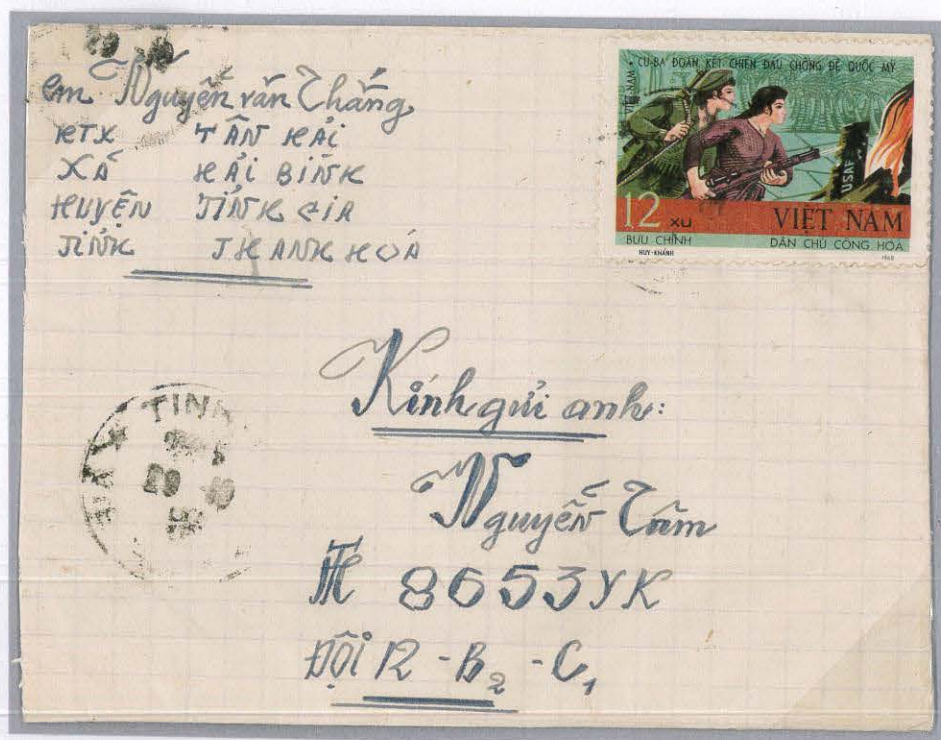 em Nguyễn văn Thắng
HTX TÂN HẢI
XÃ HẢI BÌNH
HUYỆN TĨNH GIA
TỈNH THANH HOÁ
CU-BA ĐOÀN KẾT CHIẾN ĐẤU CHỐNG ĐẾ QUỐC MỸ
VIỆT-NAM
USAF
12 XU
VIỆT NAM
BƯU CHÍNH
DÂN CHỦ CỘNG HÒA
HUY-KHÁNH
1968
Kính gửi anh:
Nguyễn Tâm
TH 8653YK
ĐỘI 12 - B2 - C1
TINH
20